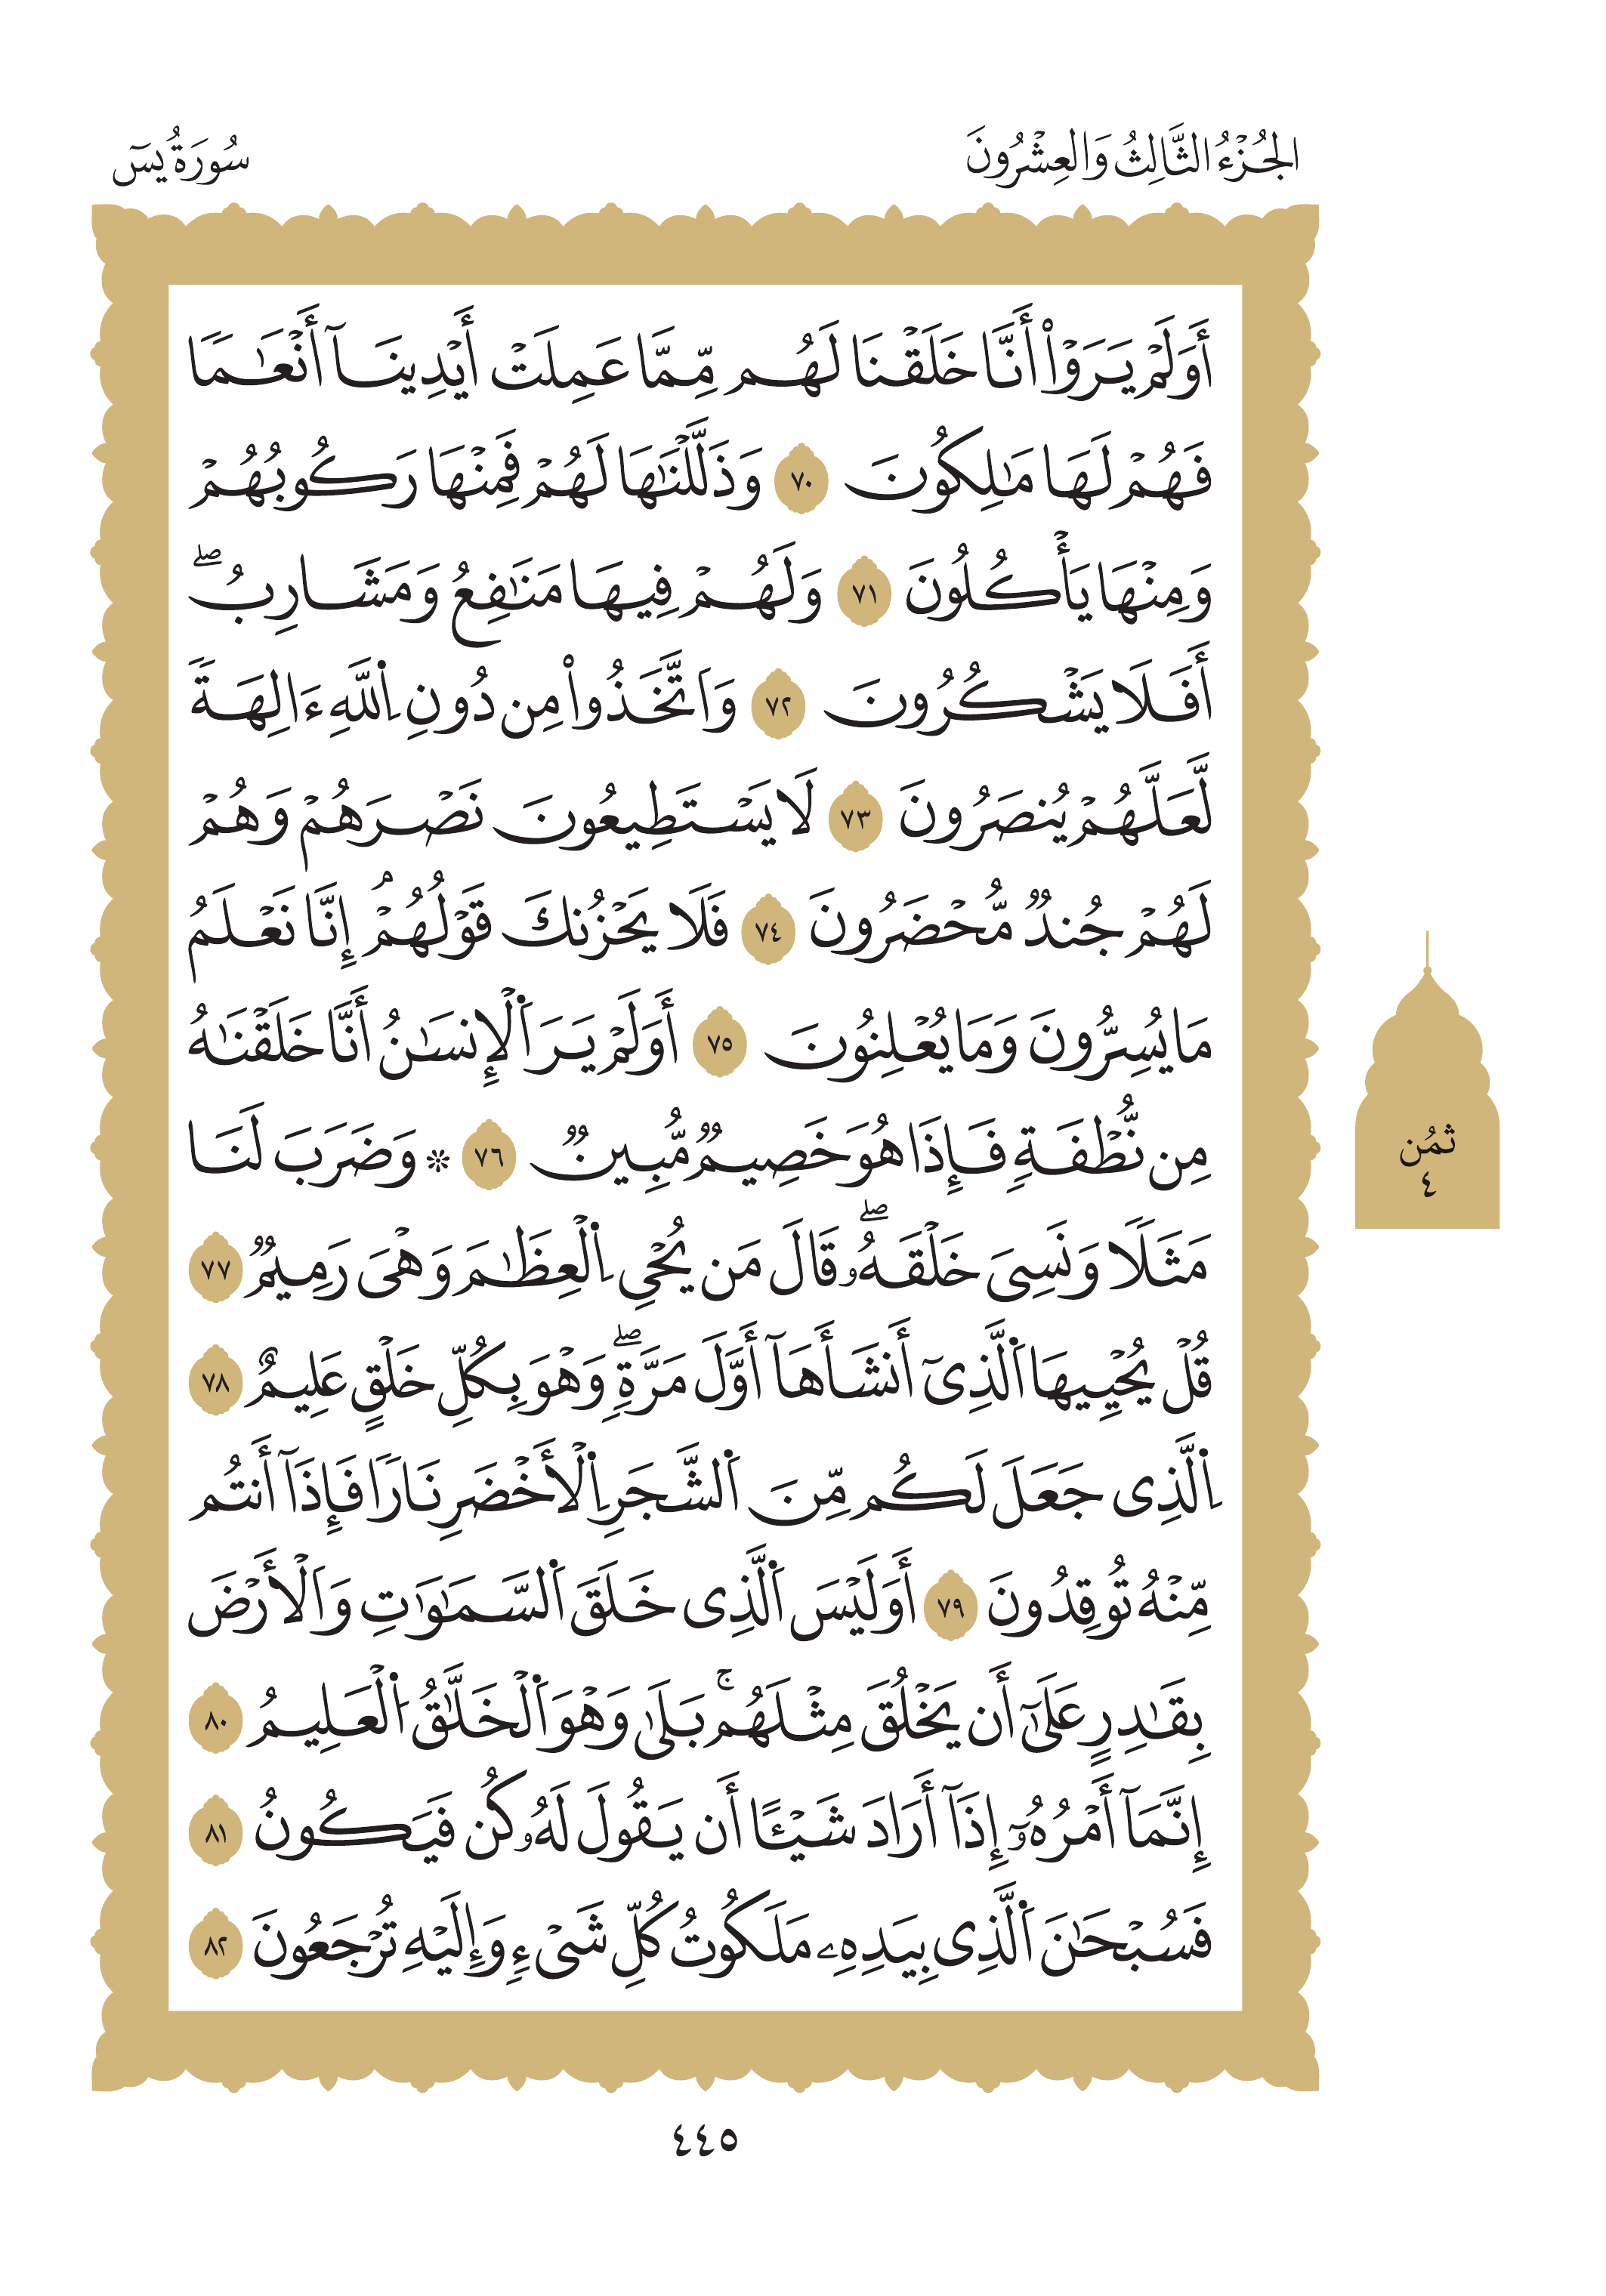 الجُزْءُ الثَّالِثُ وَالعِشْرُونَ
سُورَةُ يسٓ
أَوَلَمْ يَرَوْاْ أَنَّا خَلَقْنَا لَهُم مِّمَّا عَمِلَتْ أَيْدِينَآ أَنْعَٰمًا
فَهُمْ لَهَا مَٰلِكُونَ ٧٠ وَذَلَّلْنَٰهَا لَهُمْ فَمِنْهَا رَكُوبُهُمْ
وَمِنْهَا يَأْكُلُونَ ٧١ وَلَهُمْ فِيهَا مَنَٰفِعُ وَمَشَارِبُۖ
أَفَلَا يَشْكُرُونَ ٧٢ وَاَتَّخَذُواْ مِن دُونِ اِ۬للَّهِ ءَالِهَةً
لَّعَلَّهُمْ يُنصَرُونَ ٧٣ لَا يَسْتَطِيعُونَ نَصْرَهُمْ وَهُمْ
لَهُمْ جُندٞ مُّحْضَرُونَ ٧٤ فَلَا يَحْزُنكَ قَوْلُهُمُۥۘ إِنَّا نَعْلَمُ
مَا يُسِرُّونَ وَمَا يُعْلِنُونَ ٧٥ أَوَلَمْ يَرَ اَ۬لْإِنسَٰنُ أَنَّا خَلَقْنَٰهُ
مِن نُّطْفَةٖ فَإِذَا هُوَ خَصِيمٞ مُّبِينٞ ٧٦ ۞ وَضَرَبَ لَنَا
مَثَلٗا وَنَسِيَ خَلْقَهُۥۖ قَالَ مَن يُحْيِ اِ۬لْعِظَٰمَ وَهْيَ رَمِيمٞ ٧٧
قُلْ يُحْيِيهَا اَ۬لَّذِيٓ أَنشَأَهَآ أَوَّلَ مَرَّةٖۖ وَهْوَ بِكُلِّ خَلْقٍ عَلِيمٌ ٧٨
اِ۬لَّذِي جَعَلَ لَكُم مِّنَ اَ۬لشَّجَرِ اِ۬لْأَخْضَرِ نَارٗا فَإِذَآ أَنتُم
مِّنْهُ تُوقِدُونَ ٧٩ أَوَلَيْسَ اَ۬لَّذِي خَلَقَ اَ۬لسَّمَٰوَٰتِ وَاَلْأَرْضَ
بِقَٰدِرٍ عَلَىٰٓ أَن يَخْلُقَ مِثْلَهُمۚ بَلَىٰ وَهْوَ اَ۬لْخَلَّٰقُ اَ۬لْعَلِيمُ ٨٠
إِنَّمَآ أَمْرُهُۥٓ إِذَآ أَرَادَ شَيْـًٔا أَن يَقُولَ لَهُۥ كُن فَيَكُونُ ٨١
فَسُبْحَٰنَ اَ۬لَّذِي بِيَدِهِۦ مَلَكُوتُ كُلِّ شَيْءٖ وَإِلَيْهِ تُرْجَعُونَ ٨٢
ثُمُن
٤
٤٤٥